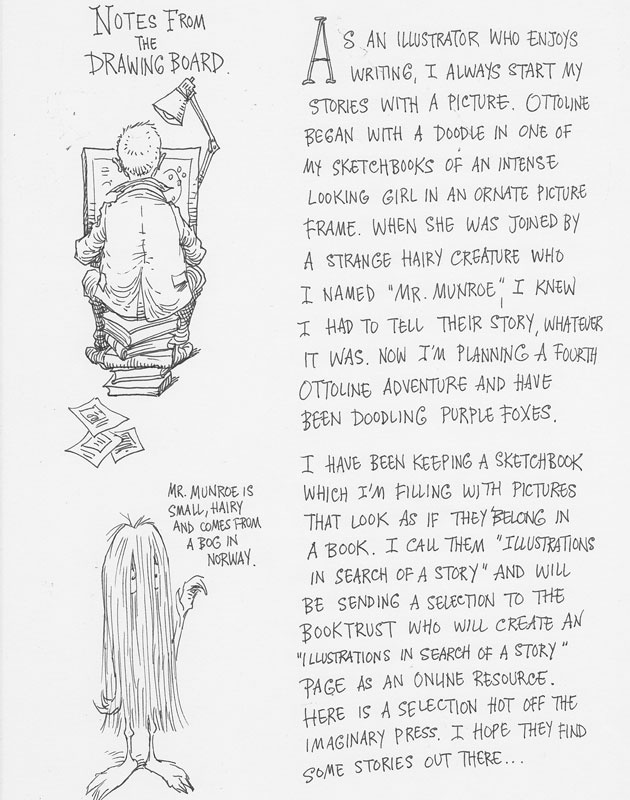 NOTES FROM
THE
DRAWING BOARD.
AS AN ILLUSTRATOR WHO ENJOYS
WRITING, I ALWAYS START MY
STORIES WITH A PICTURE. OTTOLINE
BEGAN WITH A DOODLE IN ONE OF
MY SKETCHBOOKS OF AN INTENSE
LOOKING GIRL IN AN ORNATE PICTURE
FRAME. WHEN SHE WAS JOINED BY
A STRANGE HAIRY CREATURE WHO
I NAMED "MR. MUNROE", I KNEW
I HAD TO TELL THEIR STORY, WHATEVER
IT WAS. NOW I'M PLANNING A FOURTH
OTTOLINE ADVENTURE AND HAVE
BEEN DOODLING PURPLE FOXES.
I HAVE BEEN KEEPING A SKETCHBOOK
WHICH I'M FILLING WITH PICTURES
THAT LOOK AS IF THEY BELONG IN
A BOOK. I CALL THEM "ILLUSTRATIONS
IN SEARCH OF A STORY" AND WILL
BE SENDING A SELECTION TO THE
BOOKTRUST WHO WILL CREATE AN
"ILLUSTRATIONS IN SEARCH OF A STORY"
PAGE AS AN ONLINE RESOURCE.
HERE IS A SELECTION HOT OFF THE
IMAGINARY PRESS. I HOPE THEY FIND
SOME STORIES OUT THERE...
MR. MUNROE IS
SMALL, HAIRY
AND COMES FROM
A BOG IN
NORWAY.